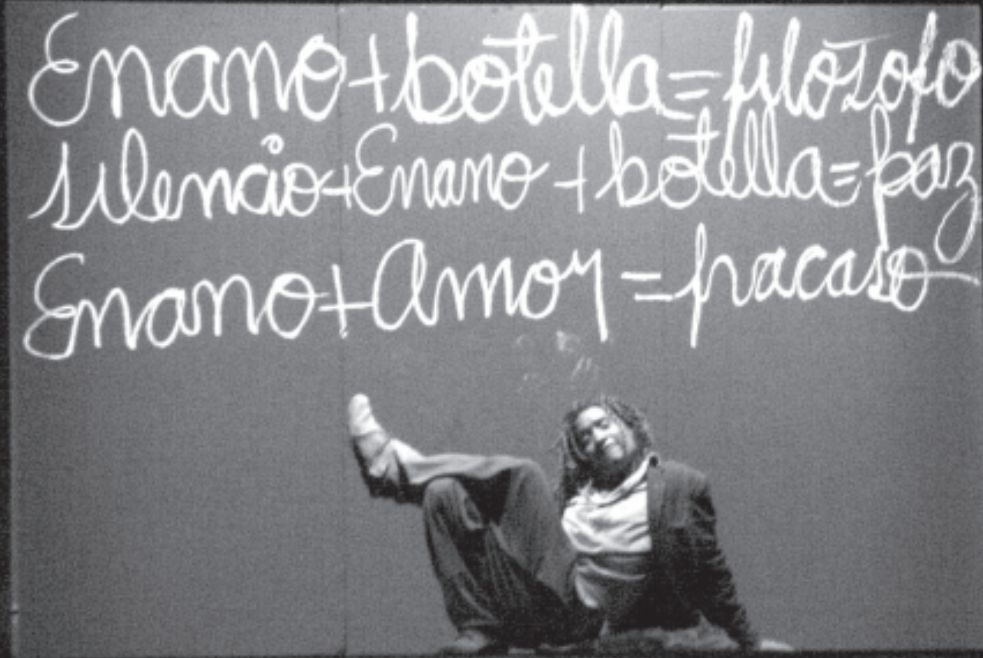 Enano+botella=filósofo
silencio+Enano+botella=paz
Enano+Amor=fracaso